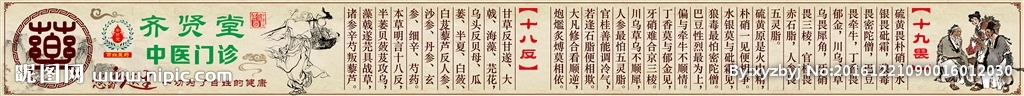 藥
齐贤堂
中医门诊
【十九畏】
硫黄畏朴硝,水
银畏砒霜,狼毒
畏密陀僧,巴豆
畏牵牛,丁香畏
郁金,川乌、草
乌畏犀角,牙硝
畏三棱,官桂畏
赤石脂,人参畏
五灵脂。
硫黄原是火中精,
朴硝一见便相争,
水银莫与砒霜见,
狼毒最怕密陀僧,
巴豆性烈最为上,
偏与牵牛不顺情,
丁香莫与郁金见,
牙硝难合京三棱,
川乌草乌不顺犀,
人参最怕五灵脂,
官桂善能调冷气,
若逢石脂便相欺,
大凡修合看顺逆,
炮爁炙煿莫相依。
【十八反】
甘草反甘遂、大
戟、海藻、芫花,
乌头反贝母、瓜
蒌、半夏、白蔹、
白芨,藜芦反人
参、沙参、丹参、玄
参、细辛、芍药。
本草明言十八反,
半蒌贝蔹芨攻乌,
藻戟遂芫俱战草,
诸参辛芍叛藜芦
昵图网
www.nipic.com
By:xyzby No:20161221090016012030